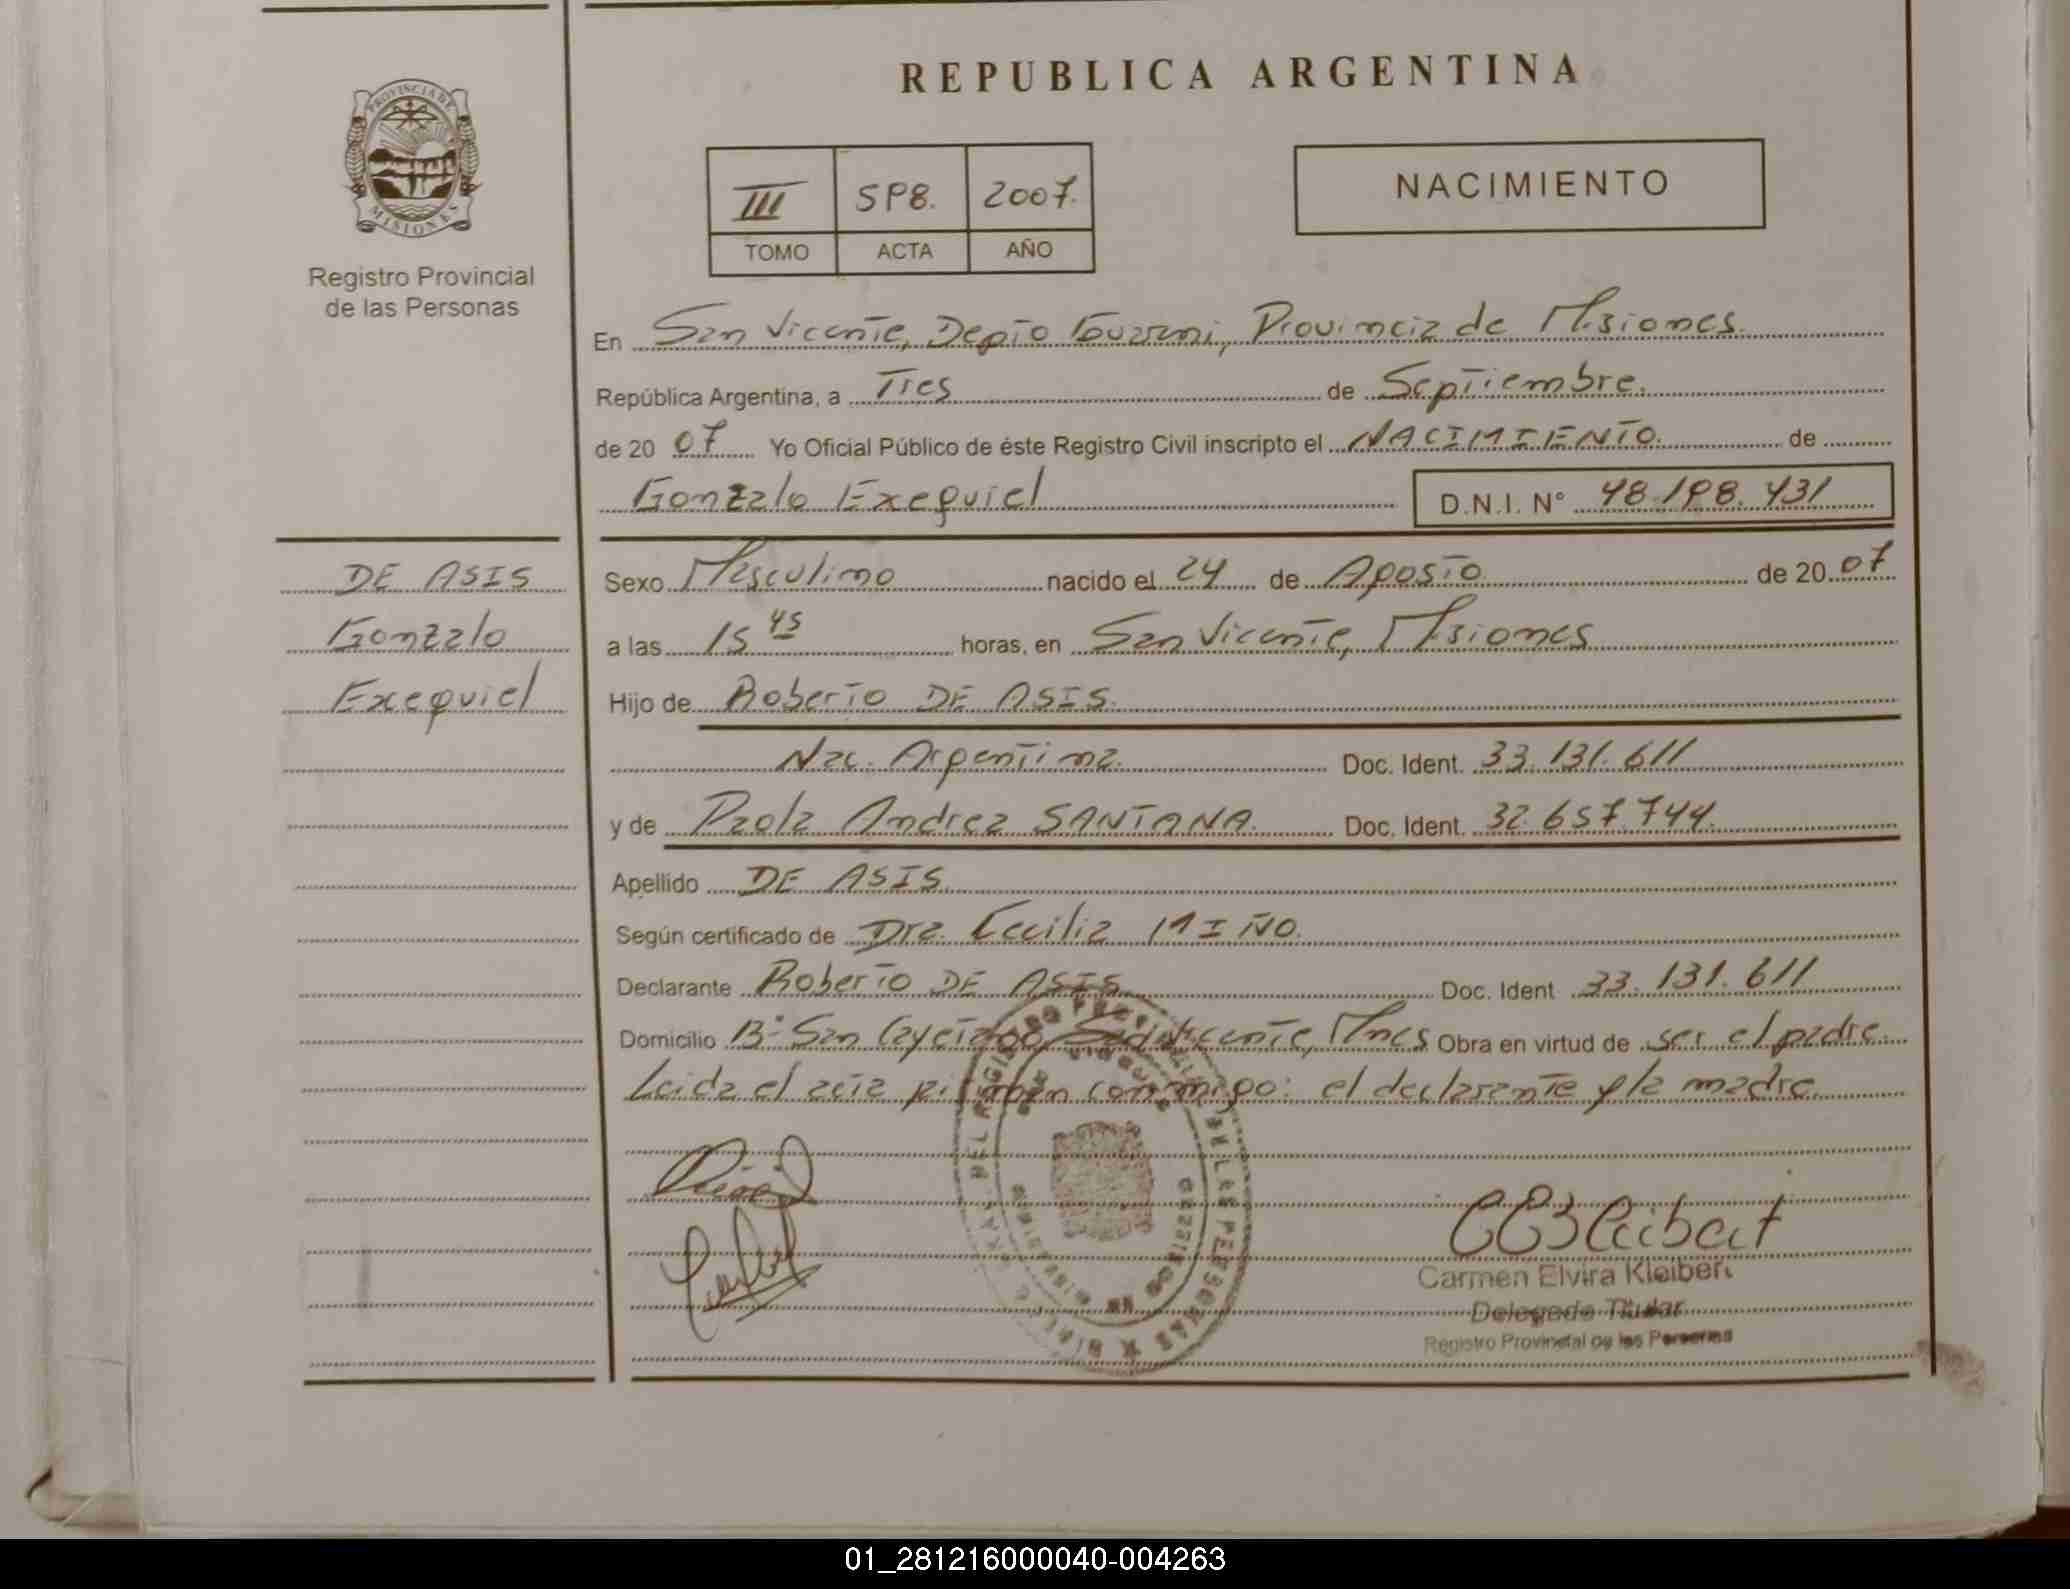 REPUBLICA ARGENTINA
PROVINCIA DE
MISIONES
Registro Provincial
de las Personas
III 598. 2007.
TOMO ACTA AÑO
NACIMIENTO
En San Vicente, Depto Guarani, Provincia de Misiones.
República Argentina, a Tres de Septiembre.
de 20 07 Yo Oficial Público de éste Registro Civil inscripto el NACIMIENTO. de
Gonzalo Exequiel D.N.I. N° 48.198.431
DE ASIS
Gonzalo
Exequiel
Sexo Masculino nacido el 24 de Agosto de 20 07
a las 15 45 horas, en San Vicente, Misiones
Hijo de Roberto DE ASIS.
Nac. Argentina. Doc. Ident. 33.131.611
y de Paola Andrea SANTANA. Doc. Ident. 32.657.744.
Apellido DE ASIS.
Según certificado de Dra. Cecilia MIÑO.
Declarante Roberto DE ASIS Doc. Ident 33.131.611
Domicilio B° San Cayetano, San Vicente, Mnes Obra en virtud de ser el padre.
Leida el acta firman conmigo: el declarante y la madre.
Carmen Elvira Kleibert
Delegado Titular
Registro Provincial de las Personas
01_281216000040-004263